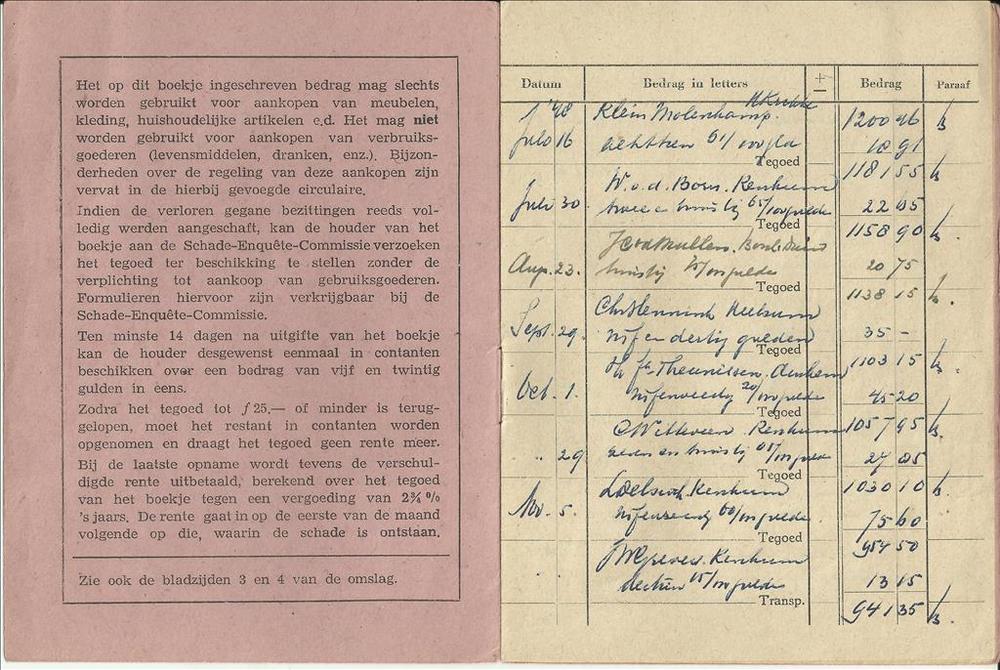 Het op dit boekje ingeschreven bedrag mag slechts
worden gebruikt voor aankopen van meubelen,
kleding, huishoudelijke artikelen e.d. Het mag niet
worden gebruikt voor aankopen van verbruiks-
goederen (levensmiddelen, dranken, enz.). Bijzon-
derheden over de regeling van deze aankopen zijn
vervat in de hierbij gevoegde circulaire.
Indien de verloren gegane bezittingen reeds vol-
ledig werden aangeschaft, kan de houder van het
boekje aan de Schade-Enquête-Commissie verzoeken
het tegoed ter beschikking te stellen zonder de
verplichting tot aankoop van gebruiksgoederen.
Formulieren hiervoor zijn verkrijgbaar bij de
Schade-Enquête-Commissie.
Ten minste 14 dagen na uitgifte van het boekje
kan de houder desgewenst eenmaal in contanten
beschikken over een bedrag van vijf en twintig
gulden in eens.
Zodra het tegoed tot ƒ 25,— of minder is terug-
gelopen, moet het restant in contanten worden
opgenomen en draagt het tegoed geen rente meer.
Bij de laatste opname wordt tevens de verschul-
digde rente uitbetaald, berekend over het tegoed
van het boekje tegen een vergoeding van 2¾ %
's jaars. De rente gaat in op de eerste van de maand
volgende op die, waarin de schade is ontstaan.
Zie ook de bladzijden 3 en 4 van de omslag.
Datum Bedrag in letters ± Bedrag Paraaf
Klein Molenkamp. 1200 46
Juli 16 achttien 91/100 gld 18 91
Tegoed 1181 55
Juli 30 twee en twintig 65/100 gulde 22 65
Tegoed 1158 90
Aug. 23. twintig 75/100 gulde 20 75
Tegoed 1138 15
Sept. 29. vijf en dertig gulden 35 -
Tegoed 1103 15
Theunissen. Arnhem
Oct. 1. 20/100 gulde 45 20
Tegoed 1057 95
C Witteveen Renkum
" 29 zeven en twintig 85/100 gulde 27 85
Tegoed 1030 10
Renkum
Nov. 5. 60/100 gulde 75 60
Tegoed 954 50
Renkum
dertien 15/100 gulde 13 15
Transp. 941 35